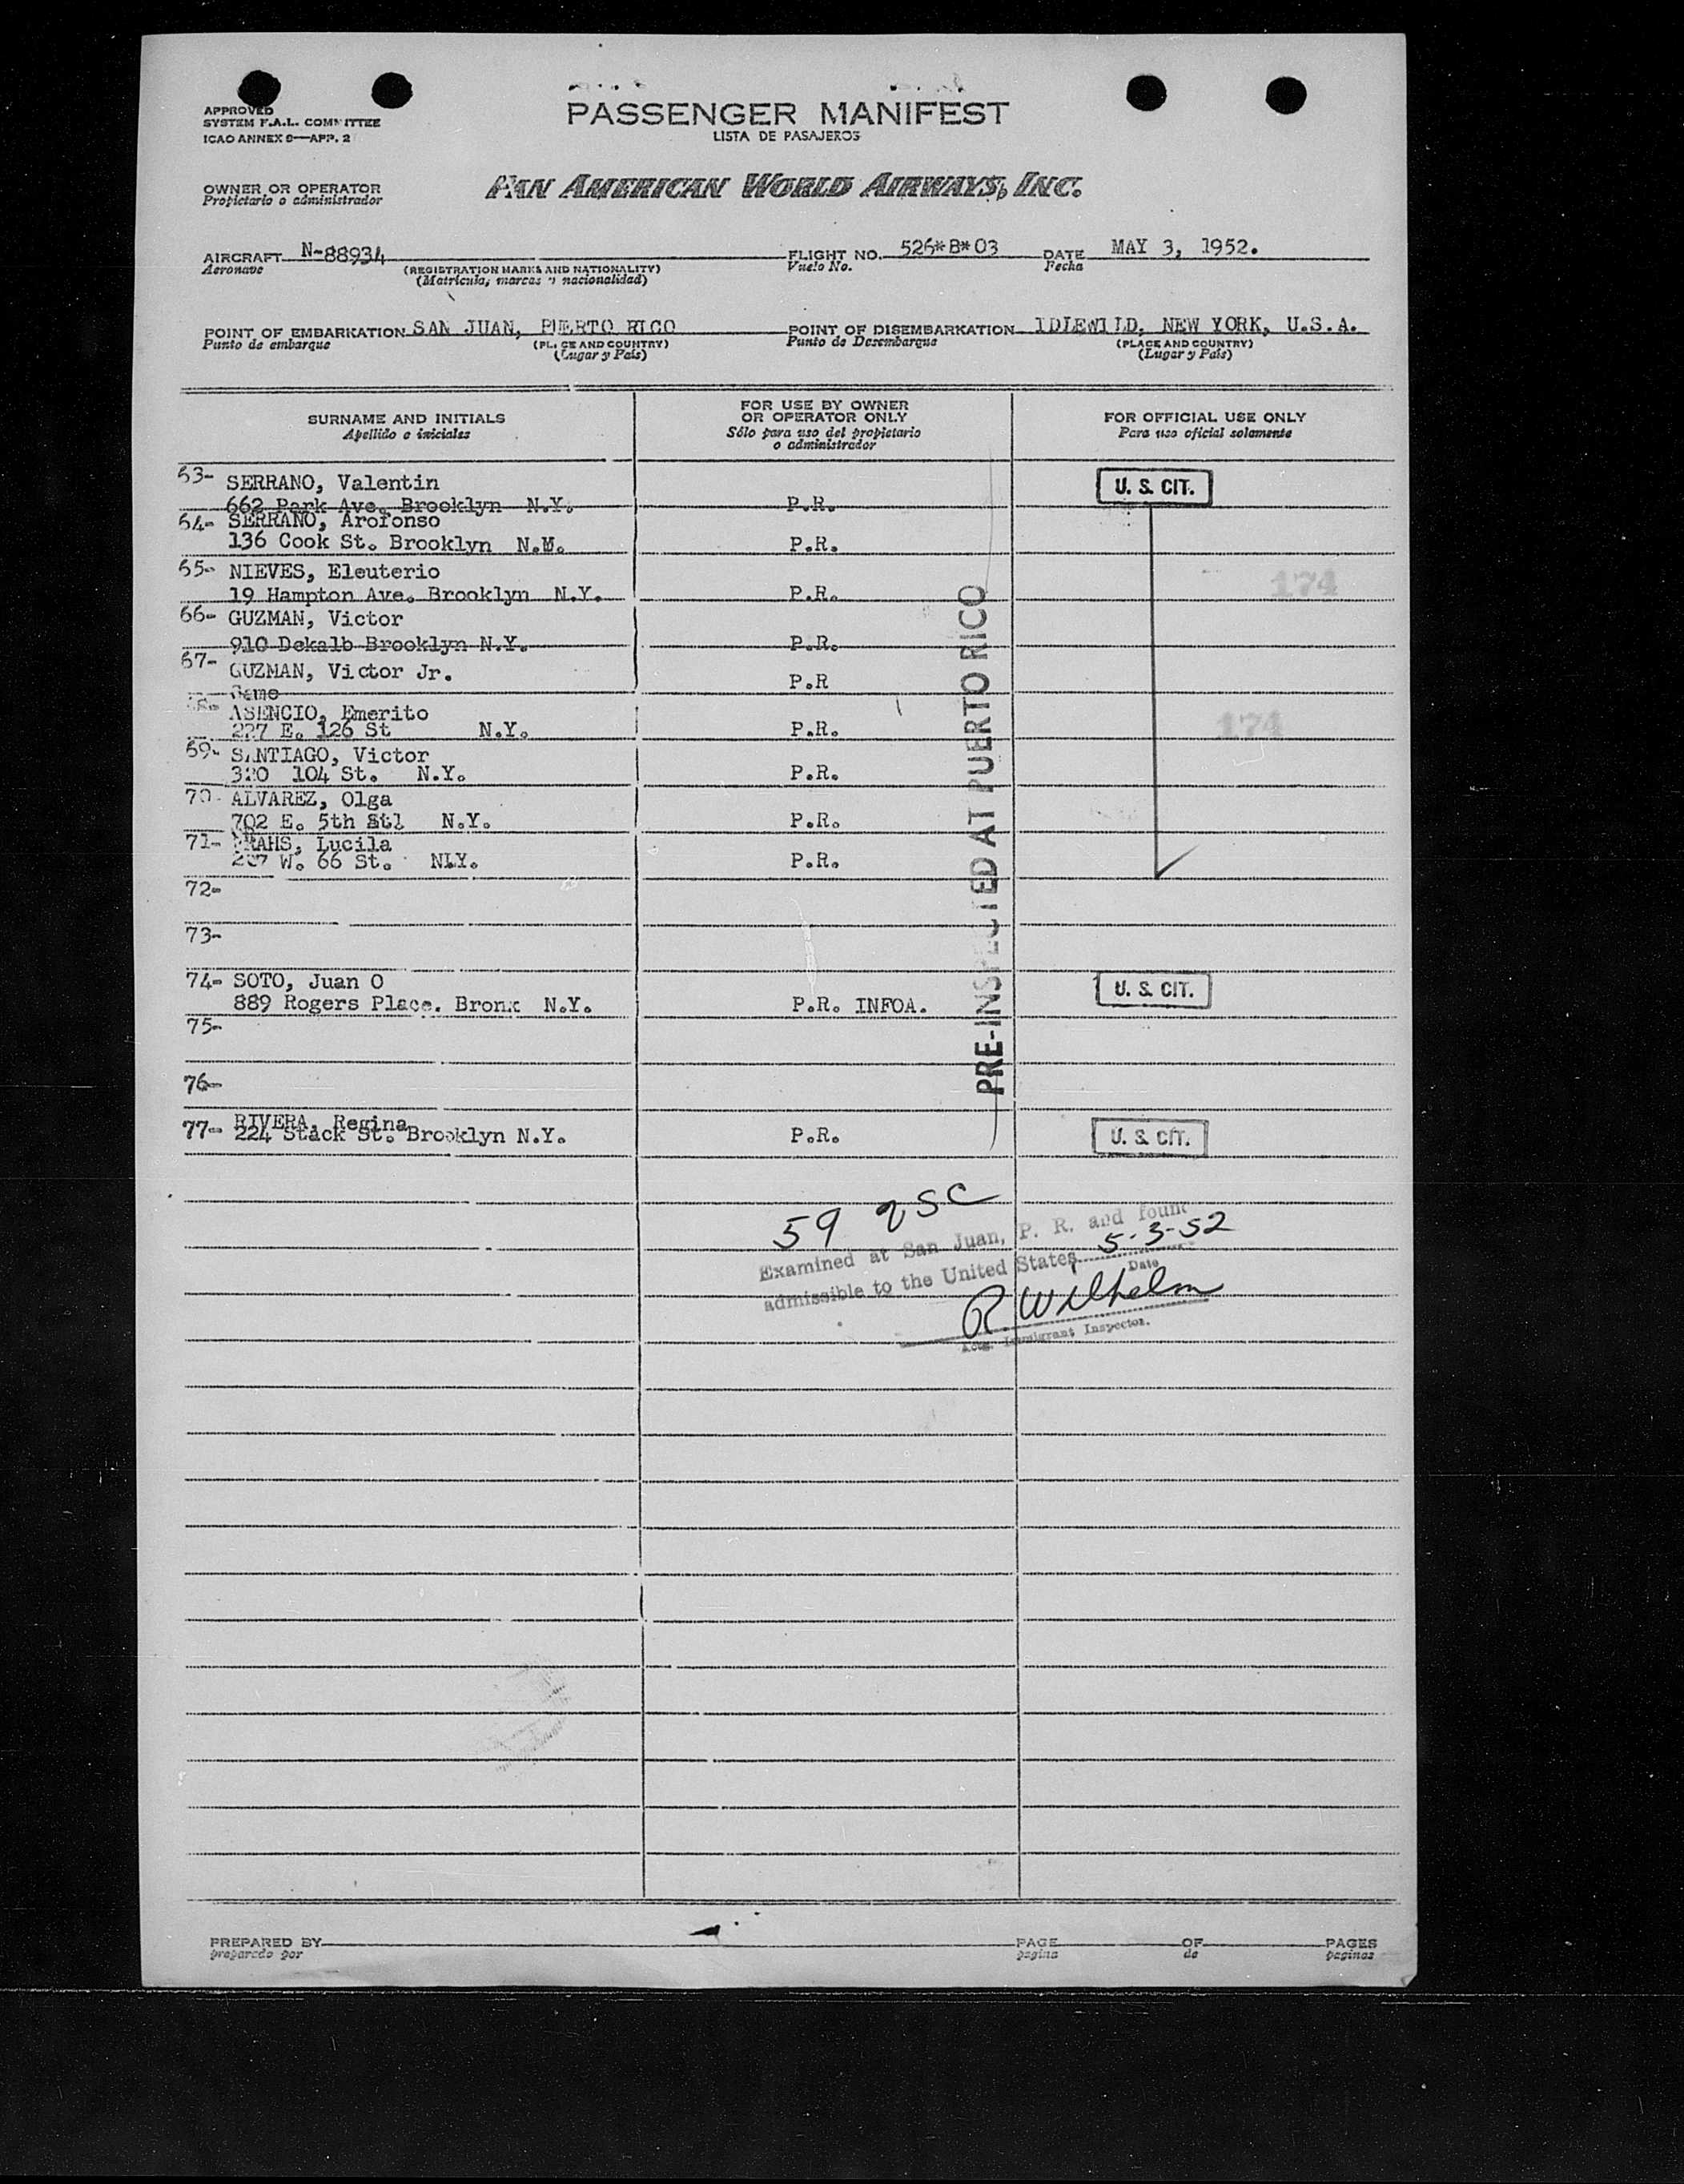 APPROVED
SYSTEM F.A.L. COMMITTEE
ICAO ANNEX 9—APP. 2
PASSENGER MANIFEST
LISTA DE PASAJEROS
OWNER OR OPERATOR
Propietario o administrador
PAN AMERICAN WORLD AIRWAYS, INC.
AIRCRAFT N-88934
Aeronave
(REGISTRATION MARKS AND NATIONALITY)
(Matricula, marcas y nacionalidad)
FLIGHT NO. 526*B*03
Vuelo No.
DATE MAY 3, 1952.
Fecha
POINT OF EMBARKATION SAN JUAN, PUERTO RICO
Punto de embarque
(PLACE AND COUNTRY)
(Lugar y País)
POINT OF DISEMBARKATION IDLEWILD, NEW YORK, U.S.A.
Punto de Desembarque
(PLACE AND COUNTRY)
(Lugar y País)
SURNAME AND INITIALS
Apellido e iniciales
FOR USE BY OWNER
OR OPERATOR ONLY
Sólo para uso del propietario
o administrador
FOR OFFICIAL USE ONLY
Para uso oficial solamente
63- SERRANO, Valentin
662 Park Ave. Brooklyn N.Y. P.R.
U. S. CIT.
64- SERRANO, Arofonso
136 Cook St. Brooklyn P.R.
65- NIEVES, Eleuterio
19 Hampton Ave. Brooklyn N.Y. P.R.
174
66- GUZMAN, Victor
910 Dekalb Brooklyn N.Y. P.R.
67- GUZMAN, Victor Jr.
Same P.R
ASENCIO, Emerito
227 E. 126 St N.Y. P.R.
174
69- SANTIAGO, Victor
320 104 St. N.Y. P.R.
70- ALVAREZ, Olga
702 E. 5th Stl N.Y. P.R.
71- Lucila
W. 66 St. NLY. P.R.
72-
73-
74- SOTO, Juan O
889 Rogers Place. Bronx N.Y. P.R. INFOA.
U. S. CIT.
75-
76-
77- RIVERA, Regina
224 Stack St. Brooklyn N.Y. P.R.
U. S. CIT.
PRE-INSPECTED AT PUERTO RICO
59 USC
Examined at San Juan, P. R. and found
admissible to the United States 5-3-52
Date
R. Wilhelm
Immigrant Inspector.
PREPARED BY
preparado por
PAGE OF PAGES
pagina de paginas